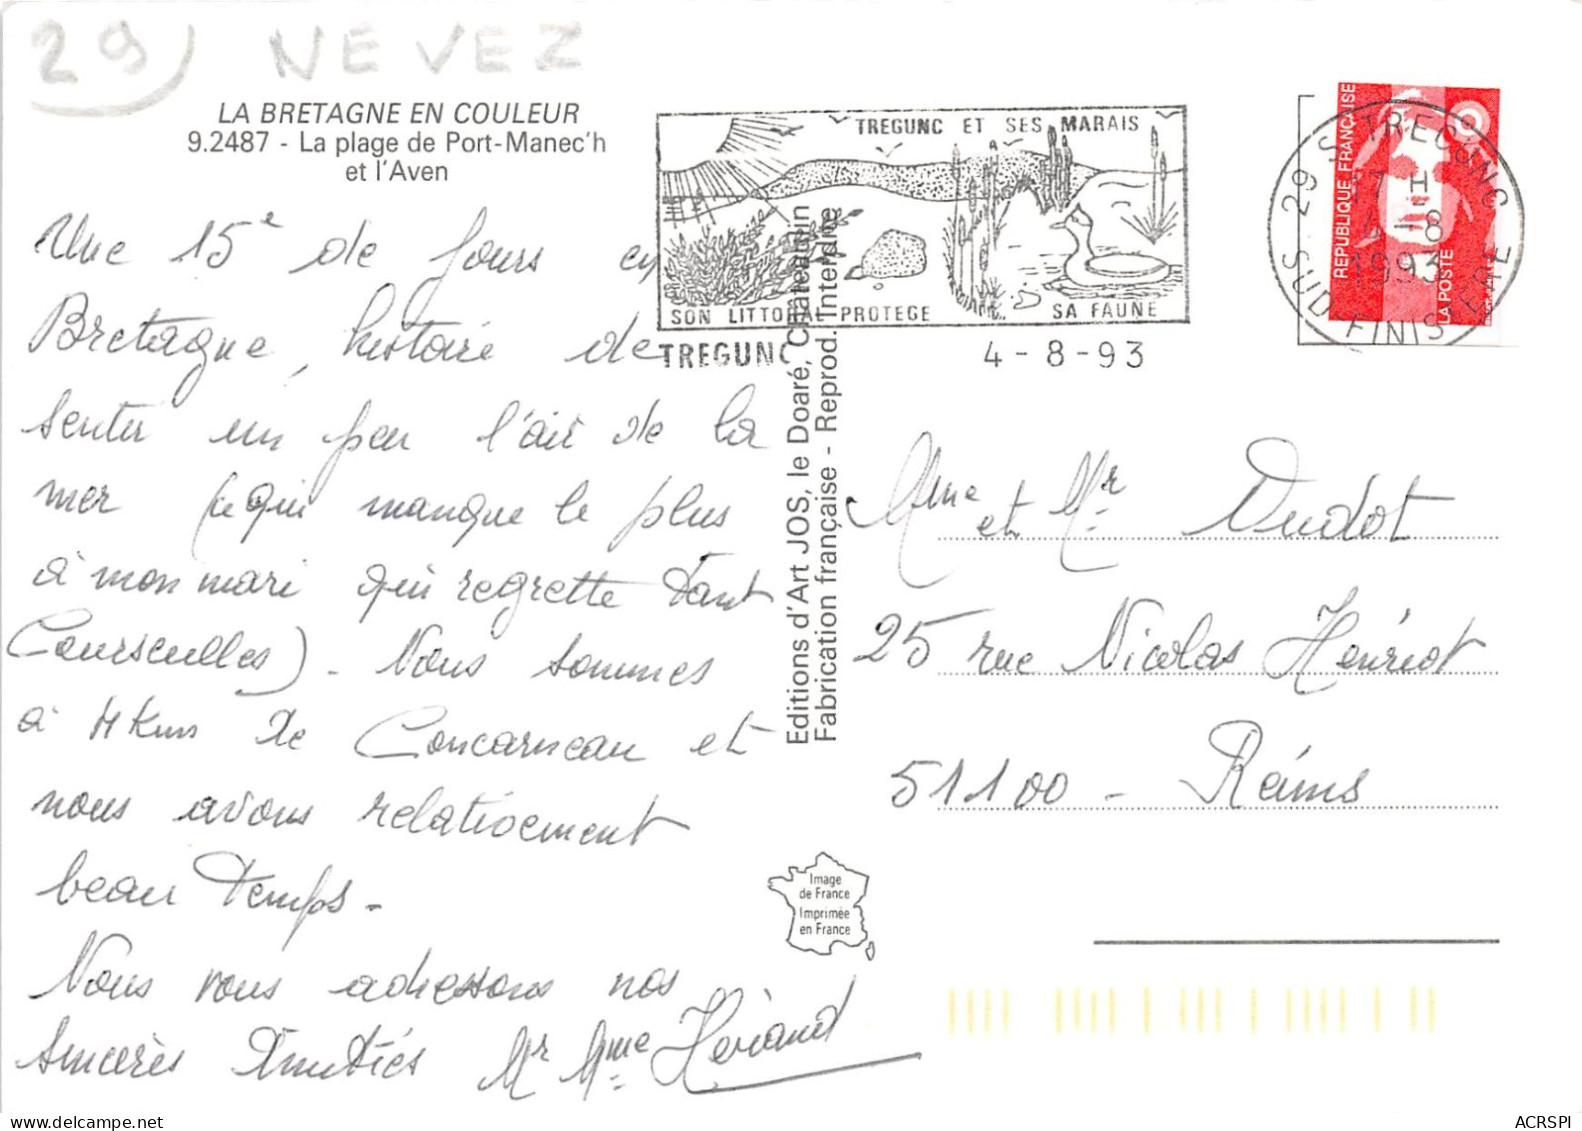 29) NEVEZ
LA BRETAGNE EN COULEUR
9.2487 - La plage de Port-Manec'h
et l'Aven
Une 15e de jours en
Bretagne, histoire de
sentir un peu l'air de la
mer (ce qui manque le plus
à mon mari qui regrette tant
Courseulles) - Nous sommes
à 4 Kms de Concarneau et
nous avons relativement
beau temps -
Nous vous adressons nos
sincères Amitiés Mr Mme Hériand
TREGUNC ET SES MARAIS
SON LITTORAL PROTEGE SA FAUNE
TREGUNC 4-8-93
REPUBLIQUE FRANÇAISE
LA POSTE
29 S TREGUNC
17 H
4-8
1993
SUD FINISTERE
Editions d'Art JOS, le Doaré, Châteaulin
Fabrication française - Reprod. Interdite
Mme et Mr Dudot
25 rue Nicolas Henriot
51100 - Reims
Image
de France
Imprimée
en France
ACRSPI